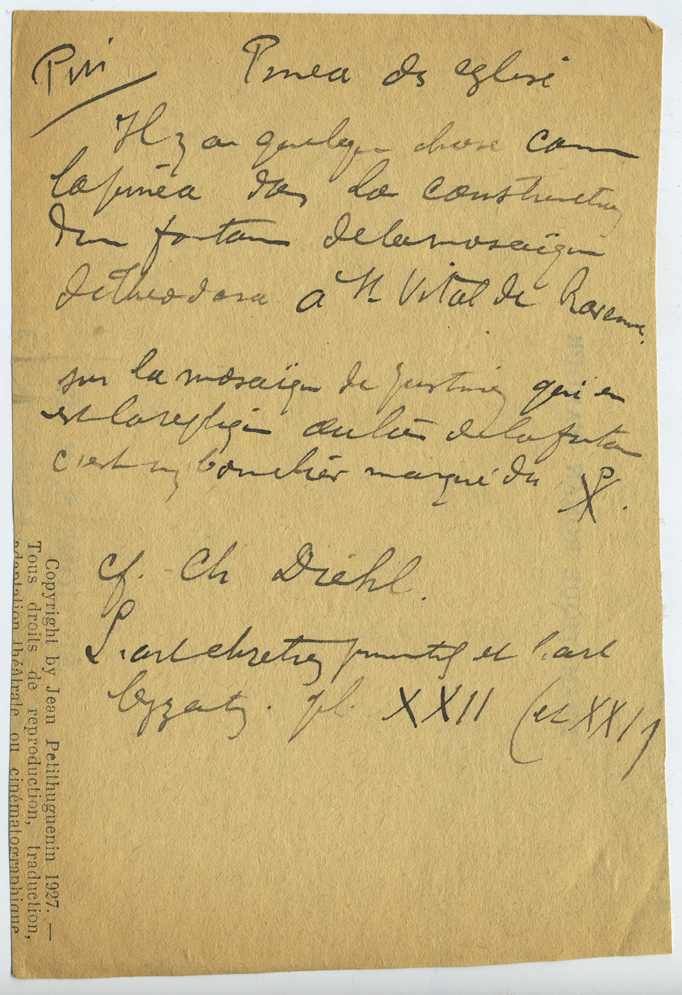 Pin
Pinea ds eglise
Il y a quelque chose com
la pinea dans la construction
d'un fontain de la mosaïque
de Theodora à St Vital de Ravenne.
sur la mosaïque de Justinien qui en
est la réplique au lieu de la fontain
c'est un bouclier marqué du ☧.
cf. Ch Diehl.
L'art chretien primitif et l'art
byzantin. pl. XXII (et XXI)
Copyright by Jean Petithuguenin 1927. —
Tous droits de reproduction, traduction,
adaptation théâtrale ou cinématographique